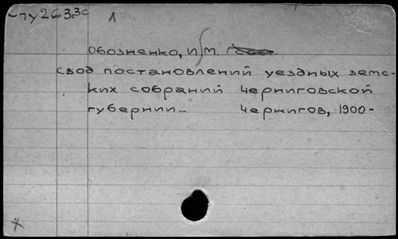 1
Обозненко, И. М.
Свод постановлений уездных земс-
ких собраний Черниговской
губернии... Чернигов, 1900-